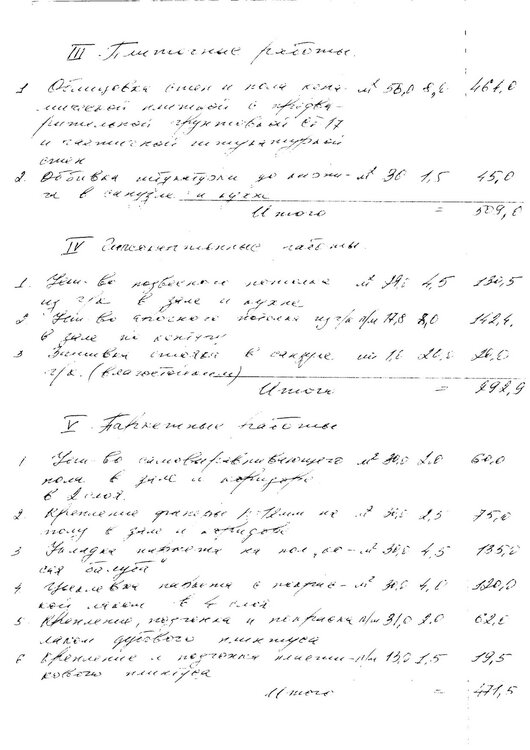 III. Плиточные работы.
1 Облицовка стен и пола кера- м² 58,0 8,0 464.0
мической плиткой с предва-
рительной грунтовкой Ст 17
и частичной штукатуркой
стен
2. Оббивка штукатурки до кирпи- м² 30 1,5 45,0
ча в санузле и кухне
Итого = 509,0
IV Гипсокартонные работы.
1. Уст-во подвесного потолка м² 4,5
из г/к в зале и кухне
2 Уст-во откосного потолка из г/к п/м 17,8 8,0 142,4.
в зале по контуру
3 Зашивка стояка в санузле шт 26,0 26,0
г/к. (влагостойким)
Итого = 292,9
V Паркетные работы
1 Уст-во самовыравнивающего м² 30,0 2.0 60,0
пола в зале и коридоре
в 2 слоя.
2 Крепление фанеры на м² 30,0 2,5 75,0
полу в зале и коридоре
3 Укладка паркета на пол, 30,0 4,5 135,0
4 Циклевка паркета с покрас- м² 30,0 4,0 120,0
кой лаком в 4 слоя
5 Крепление, подгонка и покраска п/м 31,0 2.0 62,0
лаком дубового плинтуса
6 Крепление и подгонка пласти- п/м 13,0 1,5 19,5
кового плинтуса
Итого = 471,5